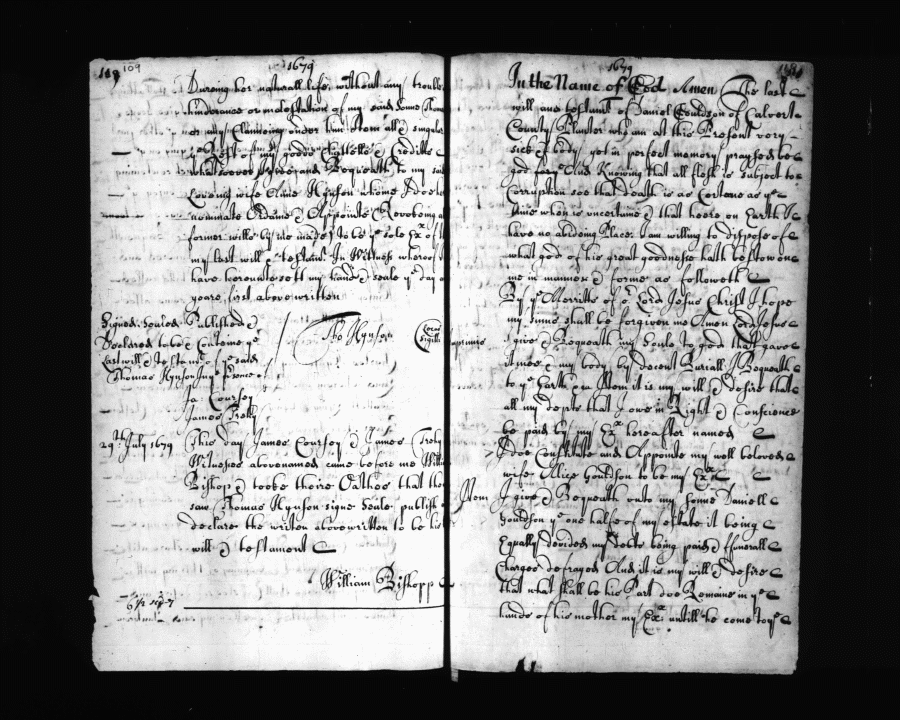 118 109
1679
Dureing her naturall life, without any trouble
hinderance or molestation of my said Sonne Thom
nor any Claimeing under him Item all & singular
ye rest of my goods Chattells & Creditts
whatsoever I give and Bequeath to my said
Loveing wife Anne Hynson whome I doe
nominate Ordaine & Appointe (Revokeing a
former wills by me made) to be ye sole Ex of t
my last will & testamt. In Witness whereof
have hereunto sett my hand & seale ye day
yeare first above written
Signed Sealed Published &
Declared to be & Containe ye
Last will & testamt of ye said
Thomas Hynson in ye presence
Tho Hynson
Ja: Coursey
James
29th July 1679
This day James Coursey & James
Witnesses abovenamed came before me Willia
Bishop & tooke theire Oathes that the
saw Thomas Hynson signe Seale publish
declare the writen abovewritten to be his
will & testament
William Bishopp
1679
In the Name of God Amen The last
will and testamt of Daniel Gouldson of Calvert
County Planter who am at this Present very
sick of body yet in perfect memory praysed be
god for And Knowing that all flesh is subject to
Corruption soe that death is as Certaine as ye
time when is uncertaine & that heere on Earth I
have no abideing Place. I am willing to dispose of
what god of his great goodnesse hath bestow on
me in manner & forme as followeth
By ye Merritts of or Lord Jesus Christ I hope
my sinns shall be forgiven me Amen Lord Jesus
I give & Bequeath my Soule to god that gave
it mee & my body by decent Buriall I Bequeath
to ye Earth Item it is my will & desire that
all my depts that I owe in Right & Conscience
be paid by my Exx hereafter named
I doe Constitute and Appointe my well beloved
wife Alice Gouldson to be my Exx
Item I give & Bequeath unto my Sonne Daniell
Gouldson ye one halfe of my estate it being
Equally devided my Debts being paid & ffunerall
Charges defrayed And it is my will & desire
that what shall be his Part doe Remaine in ye
hands of his mother my Exx untill he come to ye